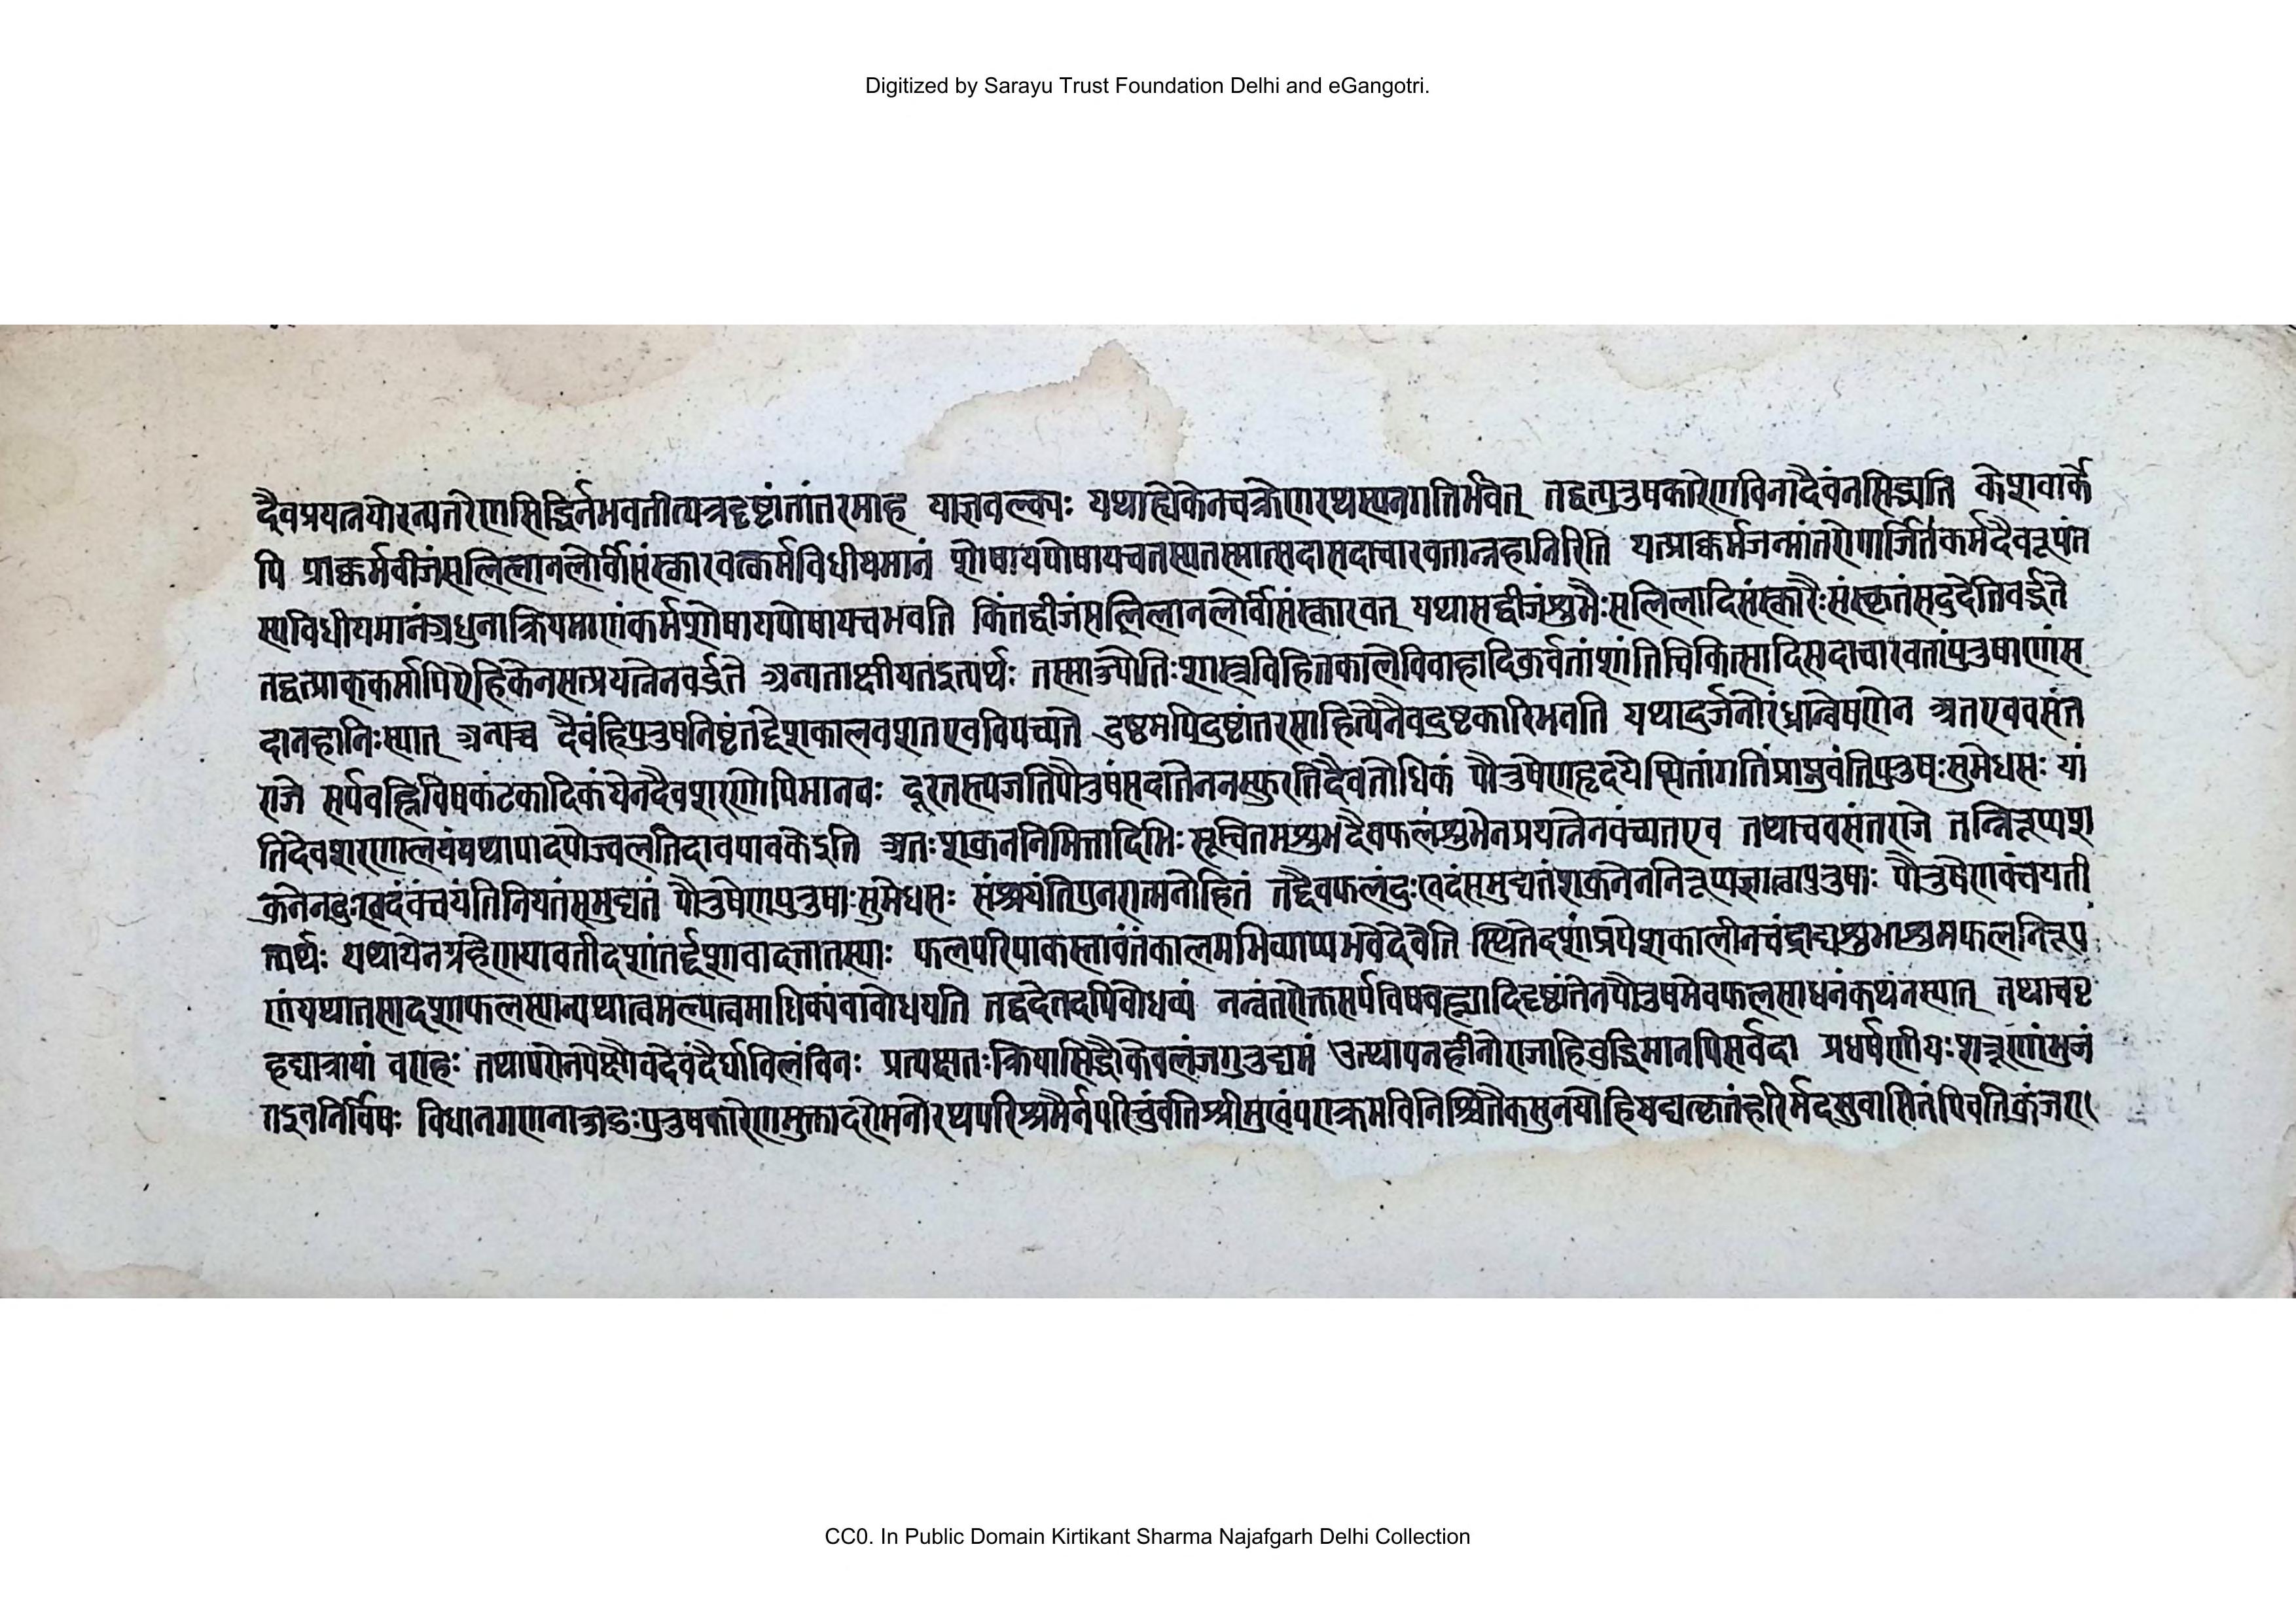 Digitized by Sarayu Trust Foundation Delhi and eGangotri.
दैवप्रयत्नयोरन्यतरेणसिद्धिर्नभवतीत्यत्रदृष्टांतांतरमाह याज्ञवल्क्यः यथाह्येकेनचक्रेणरथस्यनगतिर्भवेत् तद्वत्पुरुषकारेणविनादैवंनसिद्ध्यति केशवार्के
पि प्राक्कर्मवीजंसलिलानलोर्वीसंस्कारवत्कर्मविधीयमानं शोषायपोषायचतस्यतस्मात्सदासदाचारवतान्नहानिरिति यत्प्राक्कर्मजन्मांतरेणार्जितंकर्मदैवरूपंत
स्यविधीयमानंअधुनाक्रियमाणंकर्मशोषायपोषायचभवति किंतद्वीजंसलिलानलोर्वीसंस्कारवत् यथासद्वीजंशुभैःसलिलादिसंस्कारैःसंस्कृतंसदुदेतिवर्द्धते
तद्वत्प्राक्कर्मापिऐहिकेनसत्प्रयत्नेनवर्द्धते अन्यताक्षीयतइत्यर्थः तस्माज्ज्योतिःशास्त्रविहितकालेविवाहादिकुर्वतांशांतिचिकित्सादिसदाचारवतांपुरुषाणांस
दानहानिःस्यात् अन्यच्च दैवंहिपुरुषनिष्टंतद्देशकालवशतएवविपच्यते दुष्टमपिदुष्टांतरसाहित्येनैवदुष्टकारिभवति यथादुर्जनोरंध्रान्वेषणेन अतएववसंत
राजे सर्पवह्निविषकंटकादिकंयेनदैवशरणोपिमानवः दूरतस्त्यजतिपौरुषंसदातेननस्फुरतिदैवतोधिकं पौरुषेणहृदयेप्सितांगतिंप्राप्नुवंतिपुरुषःसुमेधसः यां
तिदेवशरणालयंयथापादपोज्वलतिदावपावकेइति अतःशकुननिमित्तादिभिःसूचितमशुभदैवफलंशुभेनप्रयत्नेनवंच्यतएव तथाचवसंतराजे तन्निरूप्यश
कुनेनदुःखदंवंचयंतिनियतंसमुद्यतं पौरुषेणपुरुषाःसुमेधसः संश्रयंतिपुनरात्मनोहितं तद्दैवफलंदुःखदंसमुद्यतंशकुनेननिरूप्यज्ञात्वापुरुषाः पौरुषेणवंचयंती
त्यर्थः यथायेनग्रहेणयावतीदशांतर्द्दशावादत्तातस्याः फलपरिपाकस्तावंतंकालमभिव्याप्यभवेदेवेति स्थितेदशाप्रवेशकालीनचंद्राद्यशुभाशुभफलनिरूप
णंयथातत्सादशाफलस्यान्यथात्वमल्पत्वमाधिक्यंवाबोधयति तद्वदेतदपिवोधव्यं नन्वंतरोक्तसर्पविषवह्न्यादिदृष्टांतेनपौरुषमेवफलसाधनंकथंनस्यात् तथाचवृ
हद्यात्रायां वराहः तथापरेनपेक्ष्यैवदेवंदैर्घ्यविलंविनः प्रत्यक्षतःक्रियासिद्धौकेवलंजगुरुद्यमं उत्थापनहीनोराजाहिबुद्धिमानपिसर्वदा प्रधर्षणीयःशत्रूणांभुजं
गइवनिर्विषः विधानगणनाजडःपुरुषकारेणमुक्तादरोमनोरथपरिश्रमैर्नपरिचुंवतिश्रीमुखंपराक्रमविनिश्चितैकसुनयोहियद्यत्कृतंहरिर्मदसुवासितंपिवतिकुंजरा
CC0. In Public Domain Kirtikant Sharma Najafgarh Delhi Collection